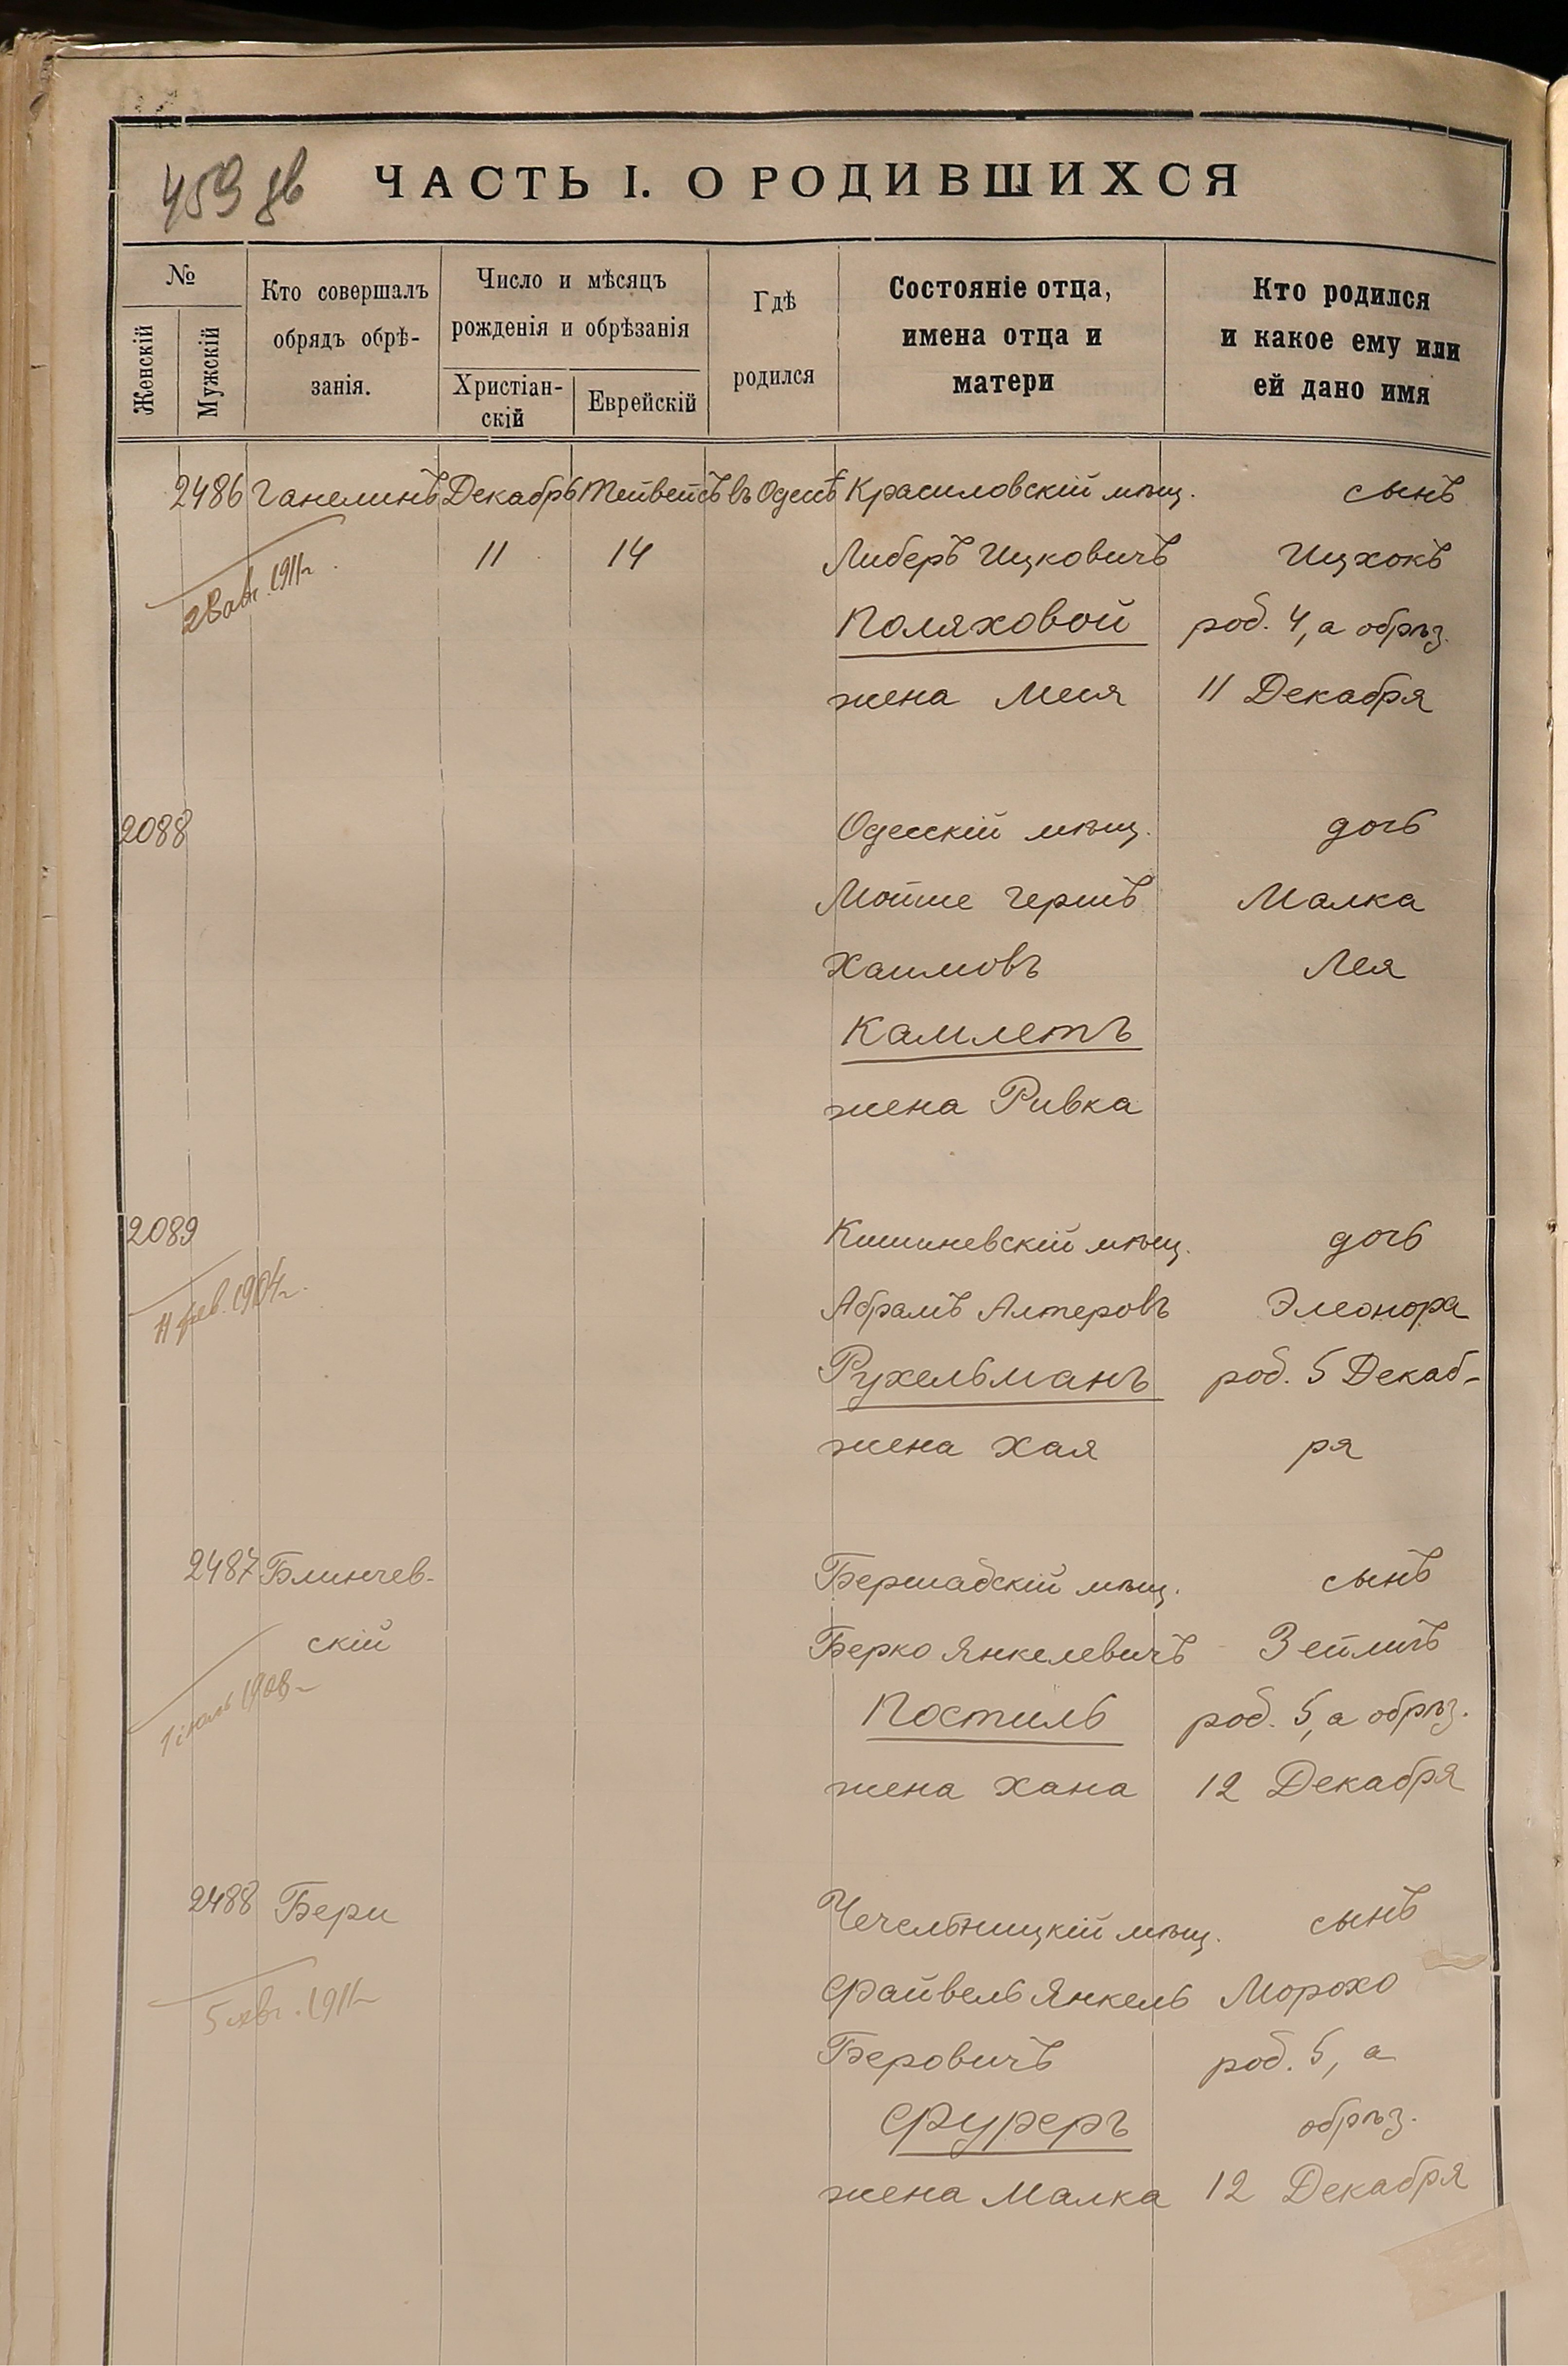 459 дв
ЧАСТЬ I. О РОДИВШИХСЯ
№
Женскій
Мужскій
Кто совершалъ
обрядъ обрѣ-
занія.
Число и мѣсяцъ
рожденія и обрѣзанія
Христіан-
скій
Еврейскій
Гдѣ
родился
Состояніе отца,
имена отца и
матери
Кто родился
и какое ему или
ей дано имя
2486 Ганелинъ Декабрь Тейвейсъ въ Одессѣ Красиловскій мѣщ. сынъ
11 14 Либеръ Ицковичъ Ицхокъ
28 авг. 1911 г.
Поляховой род. 4, а обрѣз.
жена Мея 11 Декабря
2088 Одесскій мѣщ. дочь
Мойше Гершъ Малка
Хаимовъ Лея
Камлетъ
жена Ривка
2089 Кишиневскій мѣщ. дочь
11 фев. 1904 г.
Абрамъ Алтеровъ Элеонора
Рухельманъ род. 5 Декаб-
жена Хая ря
2487 Блинчев- Бершадскій мѣщ. сынъ
скій Берко Янкелевичъ Зейлигъ
1908 г.
Постиль род. 5, а обрѣз.
жена Хана 12 Декабря
2488 Бери Чечельницкій мѣщ. сынъ
5 1911 г.
Файвель Янкель Морохо
Беровичъ род. 5, а
Фуреръ обрѣз.
жена Малка 12 Декабря